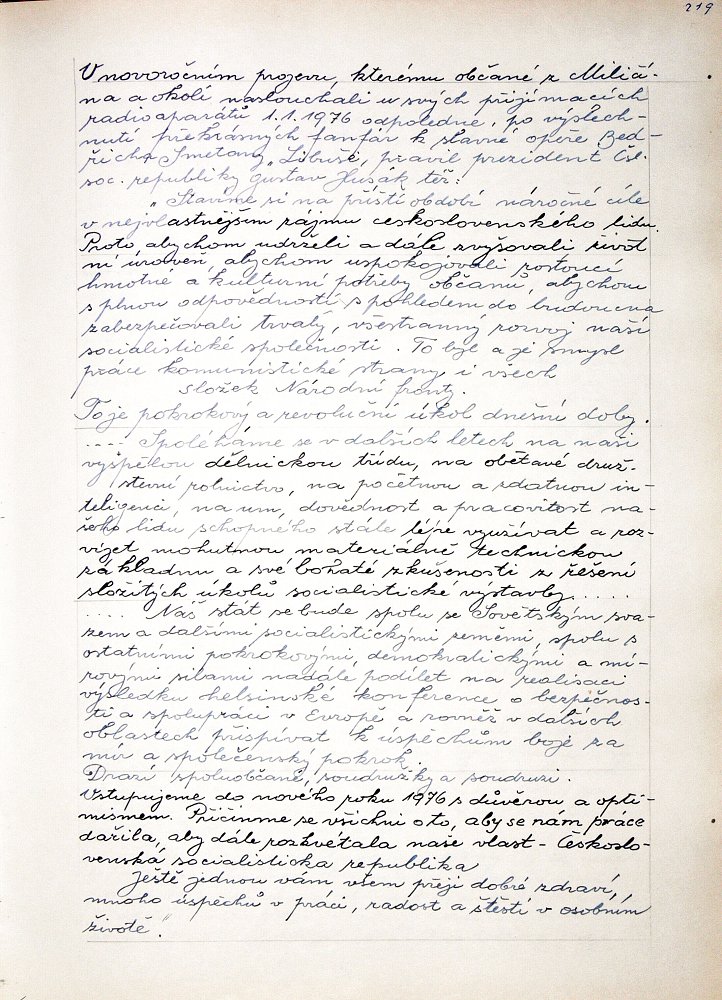 219
V novoročním projevu, kterému občané z Miličí-
na a okolí naslouchali u svých přijímacích
radioaparátů 1.1.1976 odpoledne, po vyslech-
nutí překrásných fanfár k slavné opeře Bed-
řicha Smetany „Libuše, pravil prezident Čsl.
soc. republiky Gustav Husák též:
„Stavíme si na příští období náročné cíle
v nejvlastnějším zájmu československého lidu.
Proto, abychom udrželi a dále zvyšovali život
ní úroveň, abychom uspokojovali rostoucí
hmotné a kulturní potřeby občanů, abychom
s plnou odpovědností, s pohledem do budoucna
zabezpečovali trvalý, všestranný rozvoj naší
socialistické společnosti. To byl a je smysl
práce komunistické strany i všech
složek Národní fronty.
To je pokrokový a revoluční úkol dnešní doby.
.... Spoléháme se v dalších letech na naši
vyspělou dělnickou třídu, na obětavé druž-
stevní rolnictvo, na početnou a zdatnou in-
teligenci, na um, dovědnost a pracovitost na-
šeho lidu schopného stále lépe využívat a roz-
víjet mohutnou materiálně technickou
základnu a své bohaté zkušenosti z řešení
složitých úkolů socialistické výstavby.....
.... Náš stát se bude spolu se Sovětským sva-
zem a dalšími socialistickými zeměmi, spolu s
ostatními pokrokovými, demokratickými a mí-
rovými silami nadále podílet na realisaci
výsledku helsinské konference o bezpečnos-
ti a spolupráci v Evropě a rovněž v dalších
oblastech přispívat k úspěchům boje za
mír a společenský pokrok.
Drazí spoluobčané, soudružky a soudruzi.
Vstupujeme do nového roku 1976 s důvěrou a opti-
mismem. Přičiňme se všichni o to, aby se nám práce
dařila, aby dále rozkvétala naše vlast - Českoslo-
venská socialistická republika
Ještě jednou vám všem přeji dobré zdraví,
mnoho úspěchů v práci, radost a štěstí v osobním
životě."